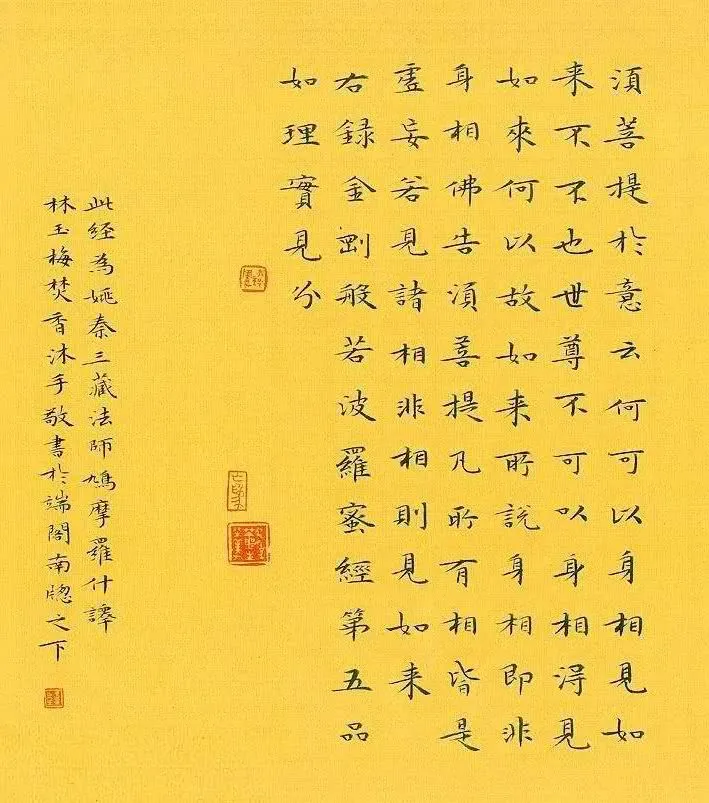 須菩提於意云何可以身相見如
来不不也世尊不可以身相得見
如來何以故如来所説身相即非
身相佛告須菩提凡所有相皆是
虛妄若見諸相非相則見如来
右録金剛般若波羅蜜經第五品
如理實見分
此経為姚秦三藏法師鳩摩羅什譯
林玉梅焚香沐手敬書於端閣南牕之下